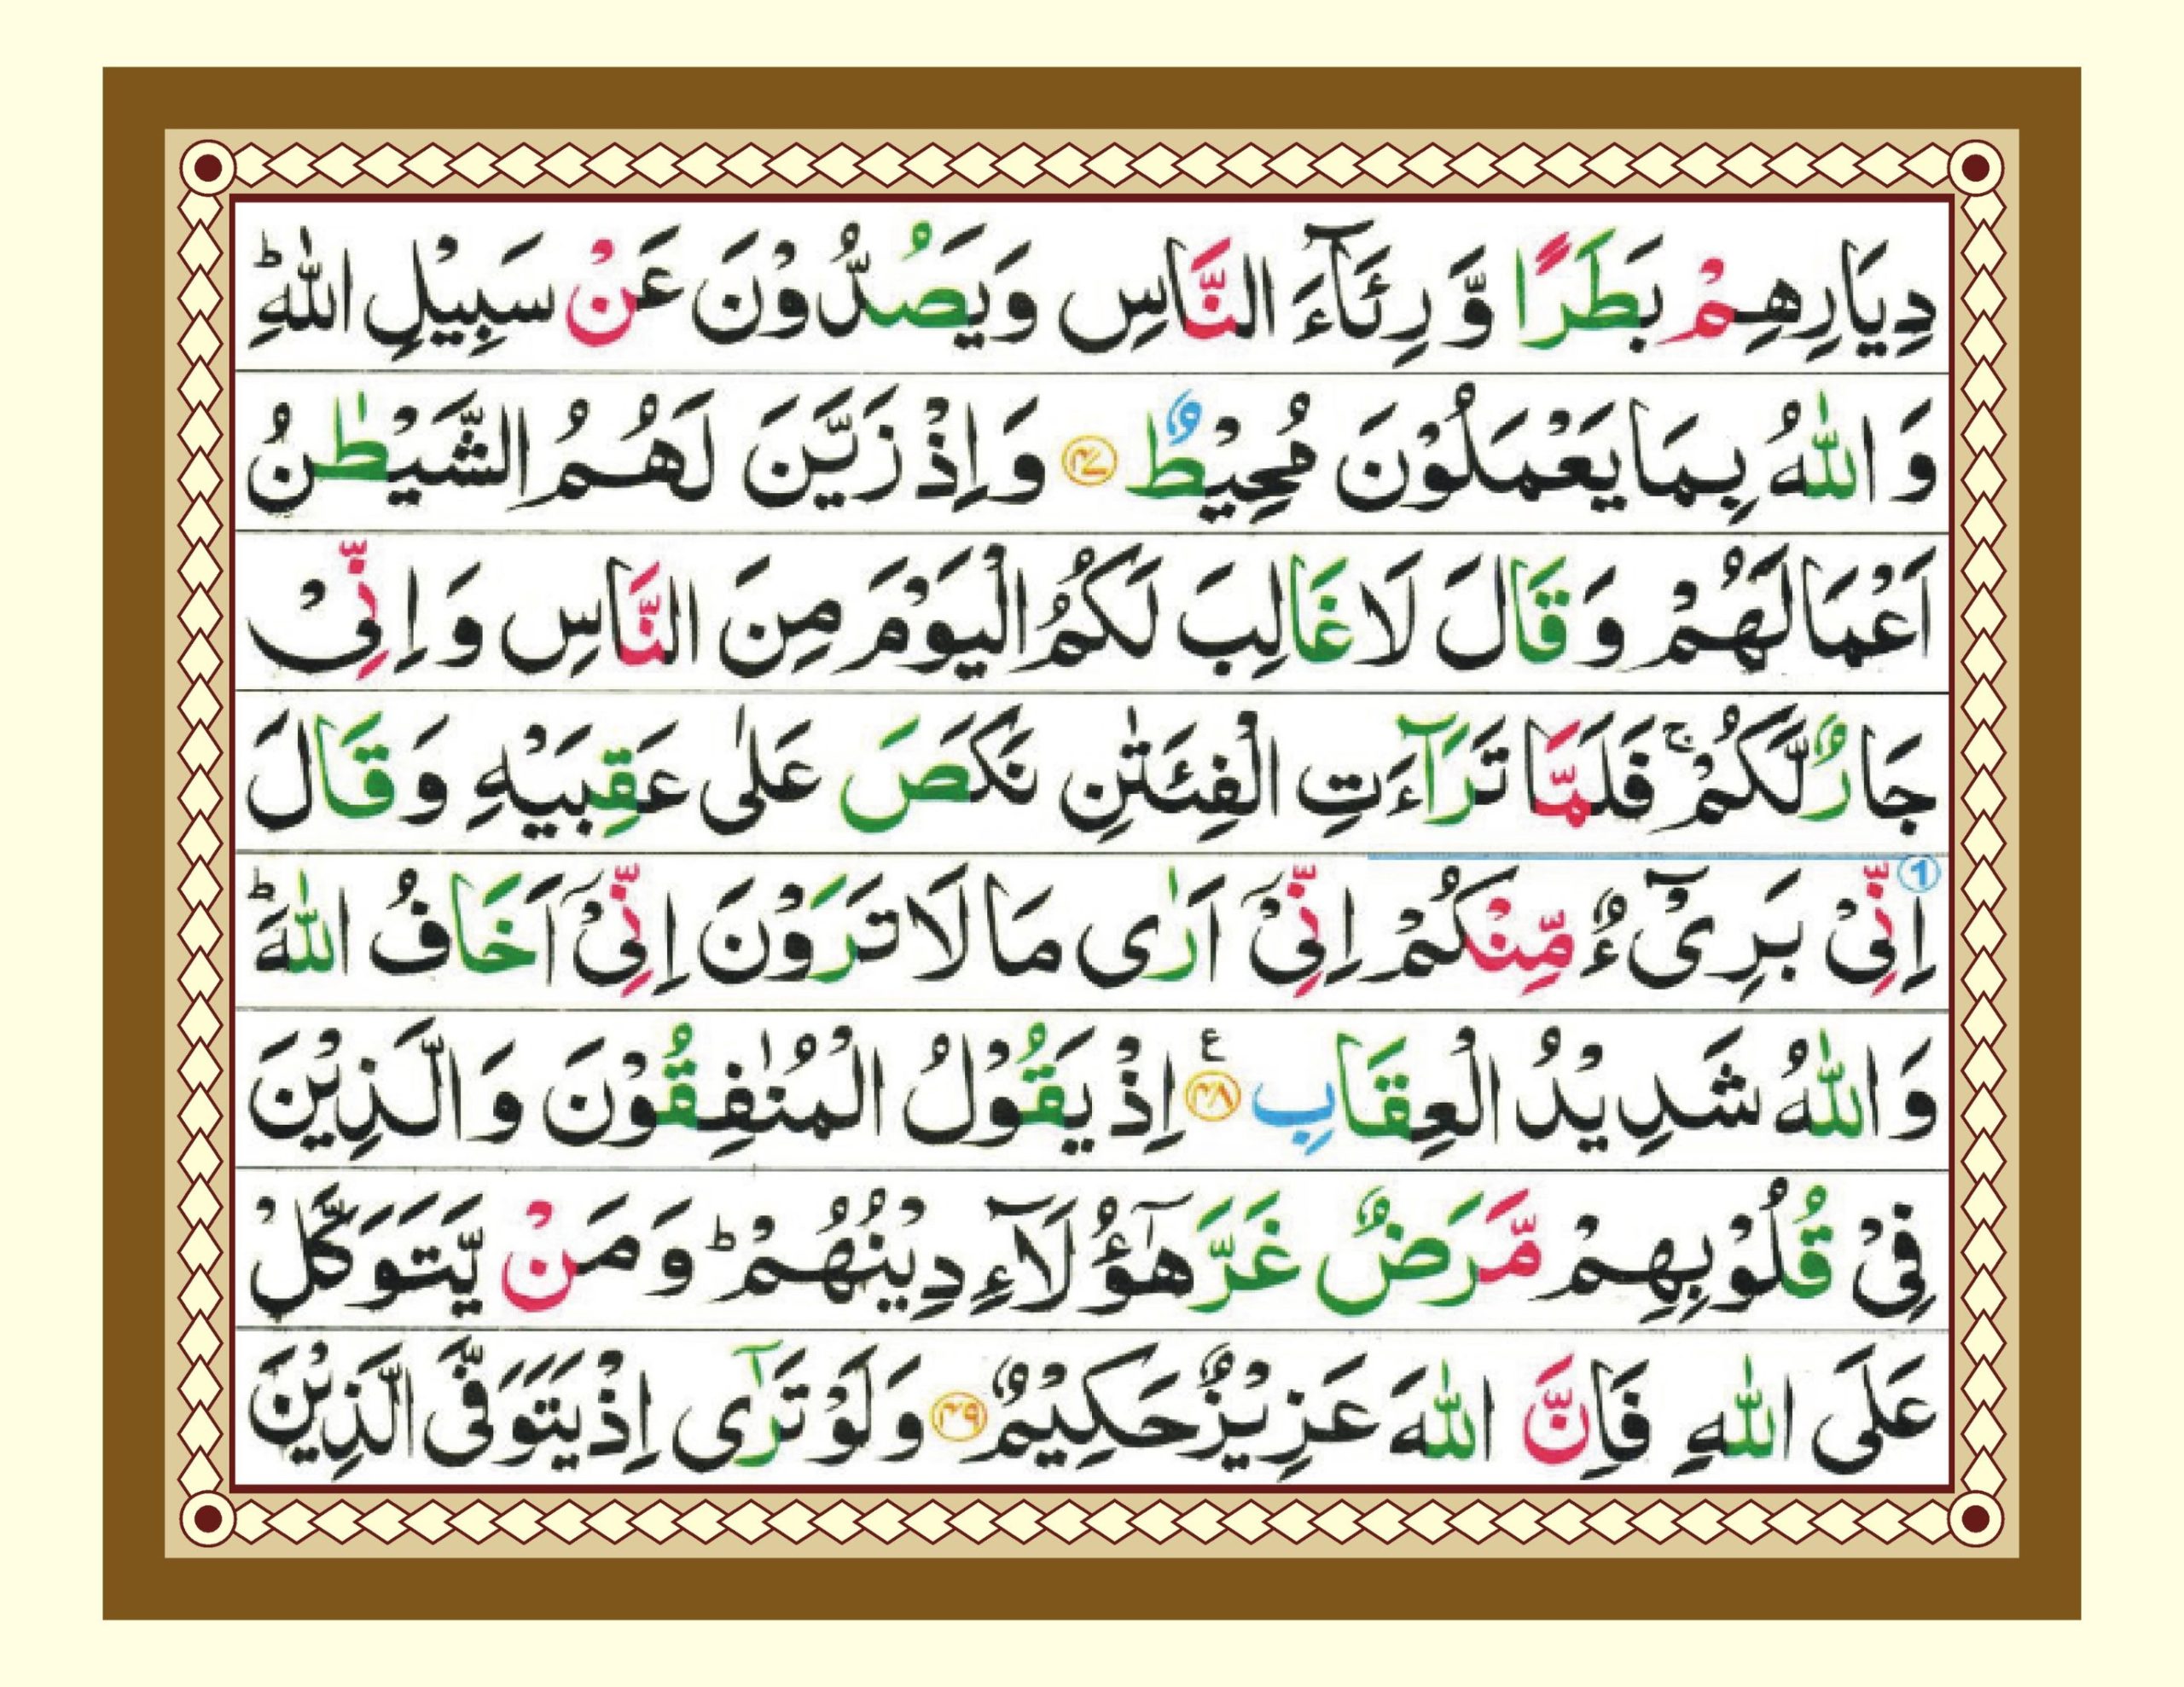 دِيَارِهِمْ بَطَرًا وَّ رِئَآءَ النَّاسِ وَيَصُدُّوْنَ عَنْ سَبِيْلِ اللّٰهِ ؕ
وَ اللّٰهُ بِمَا يَعْمَلُوْنَ مُحِيْطٌ ۴۷ وَ اِذْ زَيَّنَ لَهُمُ الشَّيْطٰنُ
اَعْمَالَهُمْ وَ قَالَ لَا غَالِبَ لَكُمُ الْيَوْمَ مِنَ النَّاسِ وَ اِنِّىْ
جَارٌ لَّكُمْ ۚ فَلَمَّا تَرَآءَتِ الْفِئَتٰنِ نَكَصَ عَلٰى عَقِبَيْهِ وَ قَالَ
1 اِنِّىْ بَرِىْٓءٌ مِّنْكُمْ اِنِّىْٓ اَرٰى مَا لَا تَرَوْنَ اِنِّىْٓ اَخَافُ اللّٰهَ ؕ
وَ اللّٰهُ شَدِيْدُ الْعِقَابِ ۴۸ ع اِذْ يَقُوْلُ الْمُنٰفِقُوْنَ وَ الَّذِيْنَ
فِىْ قُلُوْبِهِمْ مَّرَضٌ غَرَّ هٰٓؤُلَآءِ دِيْنُهُمْ ؕ وَ مَنْ يَّتَوَكَّلْ
عَلَى اللّٰهِ فَاِنَّ اللّٰهَ عَزِيْزٌ حَكِيْمٌ ۴۹ وَ لَوْ تَرٰٓى اِذْ يَتَوَفَّى الَّذِيْنَ